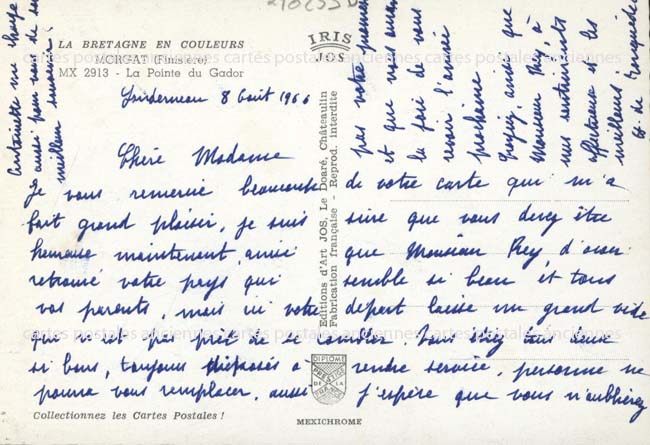 210255
LA BRETAGNE EN COULEURS
MORGAT (Finistère)
MX 2913 - La Pointe du Gador
IRIS
JOS
Landerneau 8 Août 1966
Chère Madame
Je vous remercie beaucoup de votre carte qui m'a
fait grand plaisir, je suis sûre que vous devez être
heureuse maintenant, ainsi que Monsieur Rey, d'avoir
retrouvé votre pays qui semble si beau et tous
vos parents, mais ici votre départ laisse un grand vide
qui n'est pas prêt de se combler. Vous étiez tous deux
si bons, toujours disposés à rendre service, personne ne
pourra vous remplacer, aussi j'espère que vous n'oublierez
pas votre
et que nous aurons
la joie de vous
revoir l'année
prochaine
ainsi que
Monsieur Rey à
mes sentiments
affectueux et les
meilleurs
Antoinette me charge
aussi pour vous de son
meilleur souvenir
Editions d'Art JOS, Le Doaré, Châteaulin
Fabrication française - Reprod. interdite
DIPLOME
PRESTIGE
DE LA
FRANCE
Collectionnez les Cartes Postales !
MEXICHROME
cartes postales anciennes cartes postales anciennes cartes postales anciennes
cartes postales anciennes cartes postales anciennes cartes postales anciennes